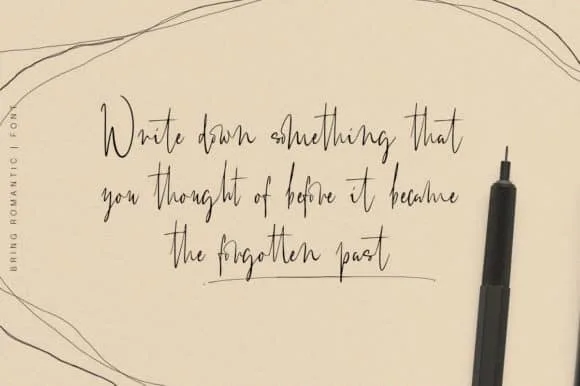 BRING ROMANTIC | FONT
Write down something that
you thought of before it became
the forgotten past